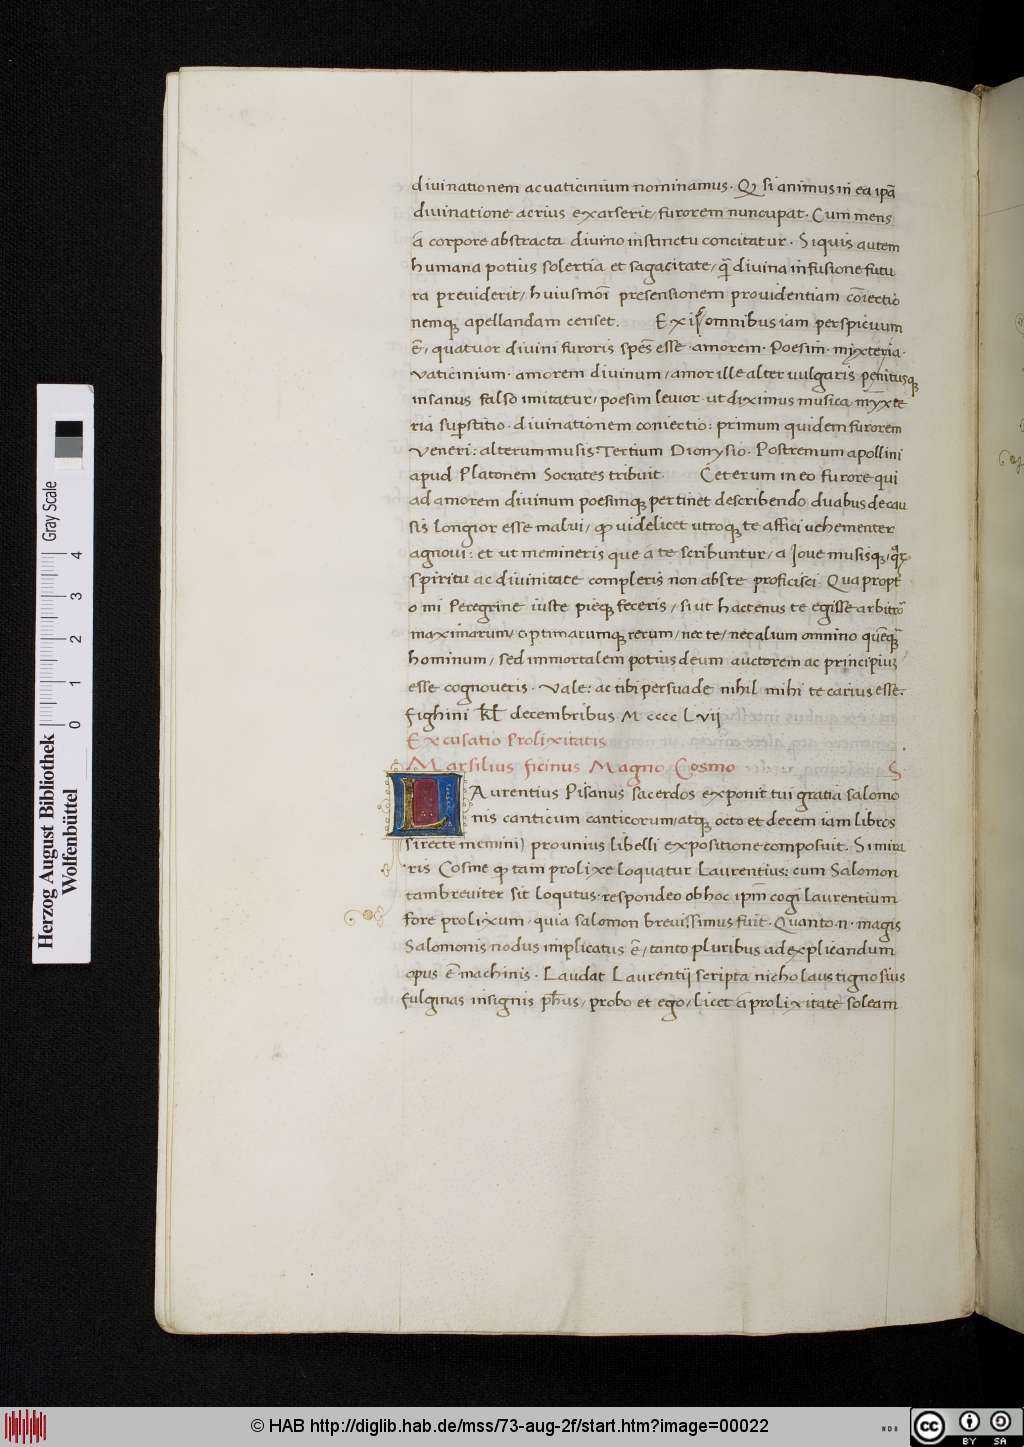 divinationem ac vaticinium nominamus. Q si animus in ea ipā
divinatione acrius exarserit/ furorem nuncupat. Cum mens
a corpore abstracta divino instinctu concitatur. Si quis autem
humana potius solertia et sagacitate/ q̄ divina infusione futu
ra previderit/ huiusmōi presensionem providentiam cōiectio
nemq; apellandam censet. Ex iis omnibus iam perspicuum
ē/ quatuor divini furoris spēs esse. amorem. Poesim. myxteria.
vaticinium. amorem divinum/ amor ille alter vulgaris penitusq;
insanus falso imitatur/ poesim levior ut diximus musica. myxte
ria supstitio. divinationem coniectio: primum quidem furorem
Veneri: alterum musis: Tertium Dionysio. Postremum apollini
apud Platonem Socrates tribuit. Ceterum in eo furore qui
ad amorem divinum poesimq; pertinet describendo duabus de cau
sis longior esse malui/ qp videlicet utroq; te affici vehementer
agnovi: et ut memineris que a te scribuntur/ a Jove musisq;/
spiritu ac divinitate compleris non abs te proficisci. Qua propt
o mi Peregrine iuste pieq; feceris/ si ut hactenus te egisse arbitrō
maximarum/ optimarumq; rerum/ nec te/ nec alium omnino quēq;
hominum/ sed immortalem potius deum auctorem ac principiuȝ
esse cognoveris. Vale: ac tibi persuade nihil mihi te carius esse.
fighini kl̄ decembribus M cccc Lvij
Excusatio Prolixitatis
Marsilius ficinus Magno Cosmo S.
LAurentius Pisanus sacerdos exponit tui gratia salomo
nis canticum canticorum/ atq; octo et decem iam libros
si recte memini) pro unius libelli expositione composuit. Si mira
ris Cosme qp tam prolixe loquatur Laurentius: cum Salomon
tam breviter sit loqutus. respondeo ob hoc ipm̄ cogi laurentium
fore prolixum. quia salomon brevissimus fuit. Quanto .n. magis
Salomonis nodus implicatus ē/ tanto pluribus ad explicandum
opus ē machinis. Laudat Laurentij scripta nicholaus tignosius
fulginas insignis ph̄us/ probo et ego/ licet a prolixitate soleam
Herzog August Bibliothek
Wolfenbüttel
Gray Scale
0 1 2 3 4
© HAB http://diglib.hab.de/mss/73-aug-2f/start.htm?image=00022
WDB
cc
BY SA